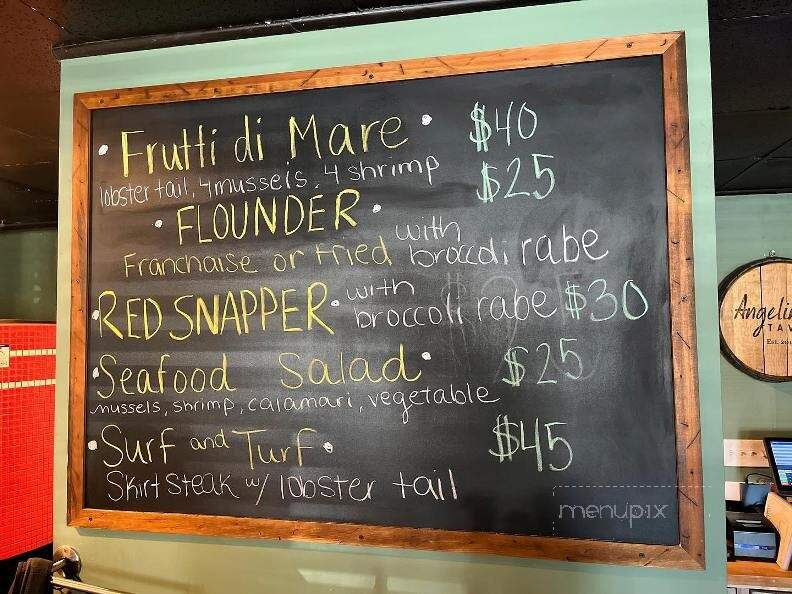 • Frutti di Mare • $40
lobster tail, 4 mussels, 4 shrimp
• FLOUNDER • $25
Franchaise or fried with broccoli rabe
• RED SNAPPER • with broccoli rabe $30
• Seafood Salad • $25
mussels, shrimp, calamari, vegetable
• Surf and Turf • $45
Skirt steak w/ lobster tail
menupix